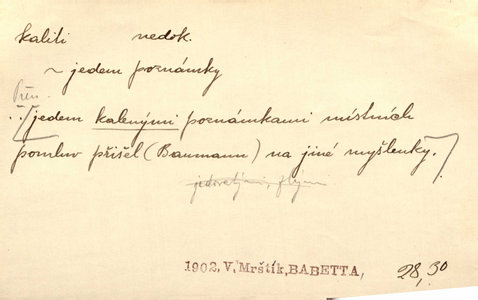 kaliti nedok.
~ jedem poznámky
Přen.
..|/jedem kalenými poznámkami místních
pomluv přišel (Baumann) na jiné myšlenky./
jedovatými, zlými
1902, V, Mrštík, BABETTA, 28,30